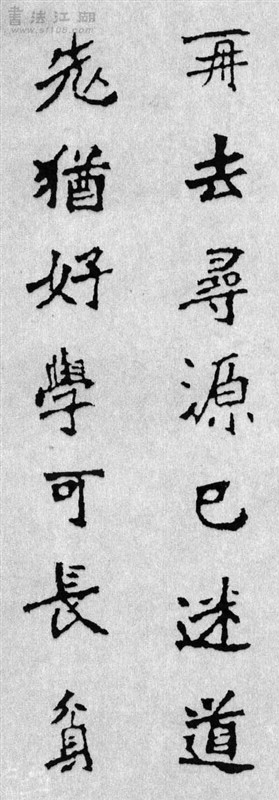 書法江湖
www.sf108.com
再去尋源已迷道
老猶好學可長貧